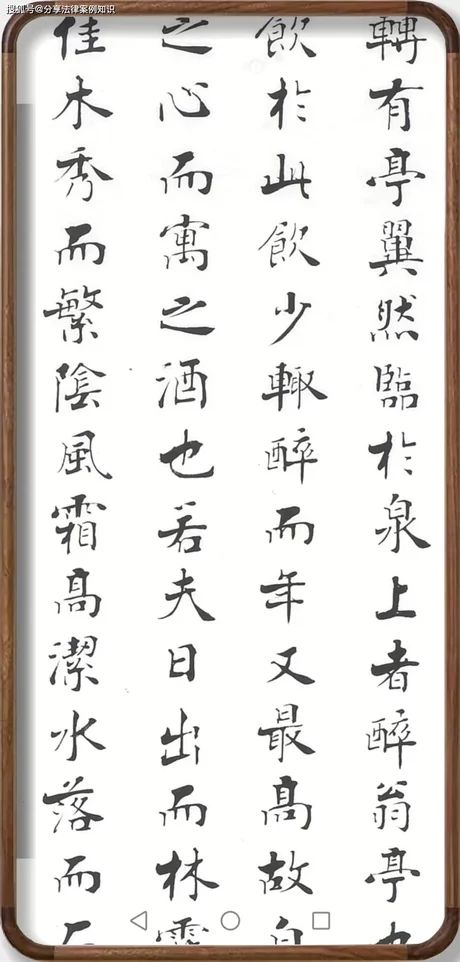 搜狐号@分享法律案例知识
轉有亭翼然臨於泉上者醉翁亭也
飲於此飲少輙醉而年又最高故自
之心而寓之酒也若夫日出而林霏
佳木秀而繁陰風霜高潔水落而石